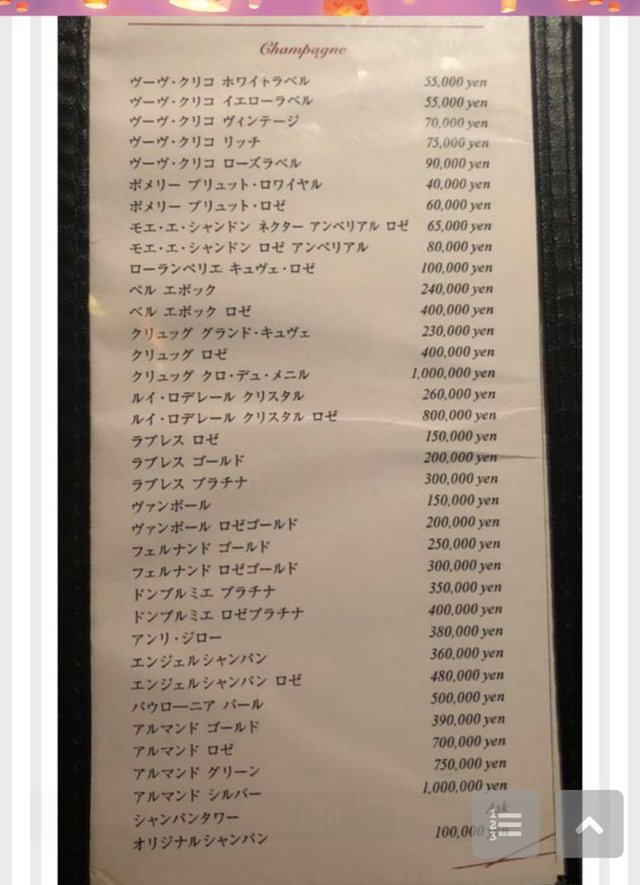 Champagne
ヴーヴ・クリコ ホワイトラベル 55,000 yen
ヴーヴ・クリコ イエローラベル 55,000 yen
ヴーヴ・クリコ ヴィンテージ 70,000 yen
ヴーヴ・クリコ リッチ 75,000 yen
ヴーヴ・クリコ ローズラベル 90,000 yen
ポメリー ブリュット・ロワイヤル 40,000 yen
ポメリー ブリュット・ロゼ 60,000 yen
モエ・エ・シャンドン ネクター アンペリアル ロゼ 65,000 yen
モエ・エ・シャンドン ロゼ アンペリアル 80,000 yen
ローランペリエ キュヴェ・ロゼ 100,000 yen
ベル エポック 240,000 yen
ベル エポック ロゼ 400,000 yen
クリュッグ グランド・キュヴェ 230,000 yen
クリュッグ ロゼ 400,000 yen
クリュッグ クロ・デュ・メニル 1,000,000 yen
ルイ・ロデレール クリスタル 260,000 yen
ルイ・ロデレール クリスタル ロゼ 800,000 yen
ラブレス ロゼ 150,000 yen
ラブレス ゴールド 200,000 yen
ラブレス プラチナ 300,000 yen
ヴァンポール 150,000 yen
ヴァンポール ロゼゴールド 200,000 yen
フェルナンド ゴールド 250,000 yen
フェルナンド ロゼゴールド 300,000 yen
ドンブルミエ プラチナ 350,000 yen
ドンブルミエ ロゼプラチナ 400,000 yen
アンリ・ジロー 380,000 yen
エンジェルシャンパン 360,000 yen
エンジェルシャンパン ロゼ 480,000 yen
パウロ―ニア パール 500,000 yen
アルマンド ゴールド 390,000 yen
アルマンド ロゼ 700,000 yen
アルマンド グリーン 750,000 yen
アルマンド シルバー 1,000,000 yen
シャンパンタワー Ask
オリジナルシャンパン 100,000 yen
1
2
3